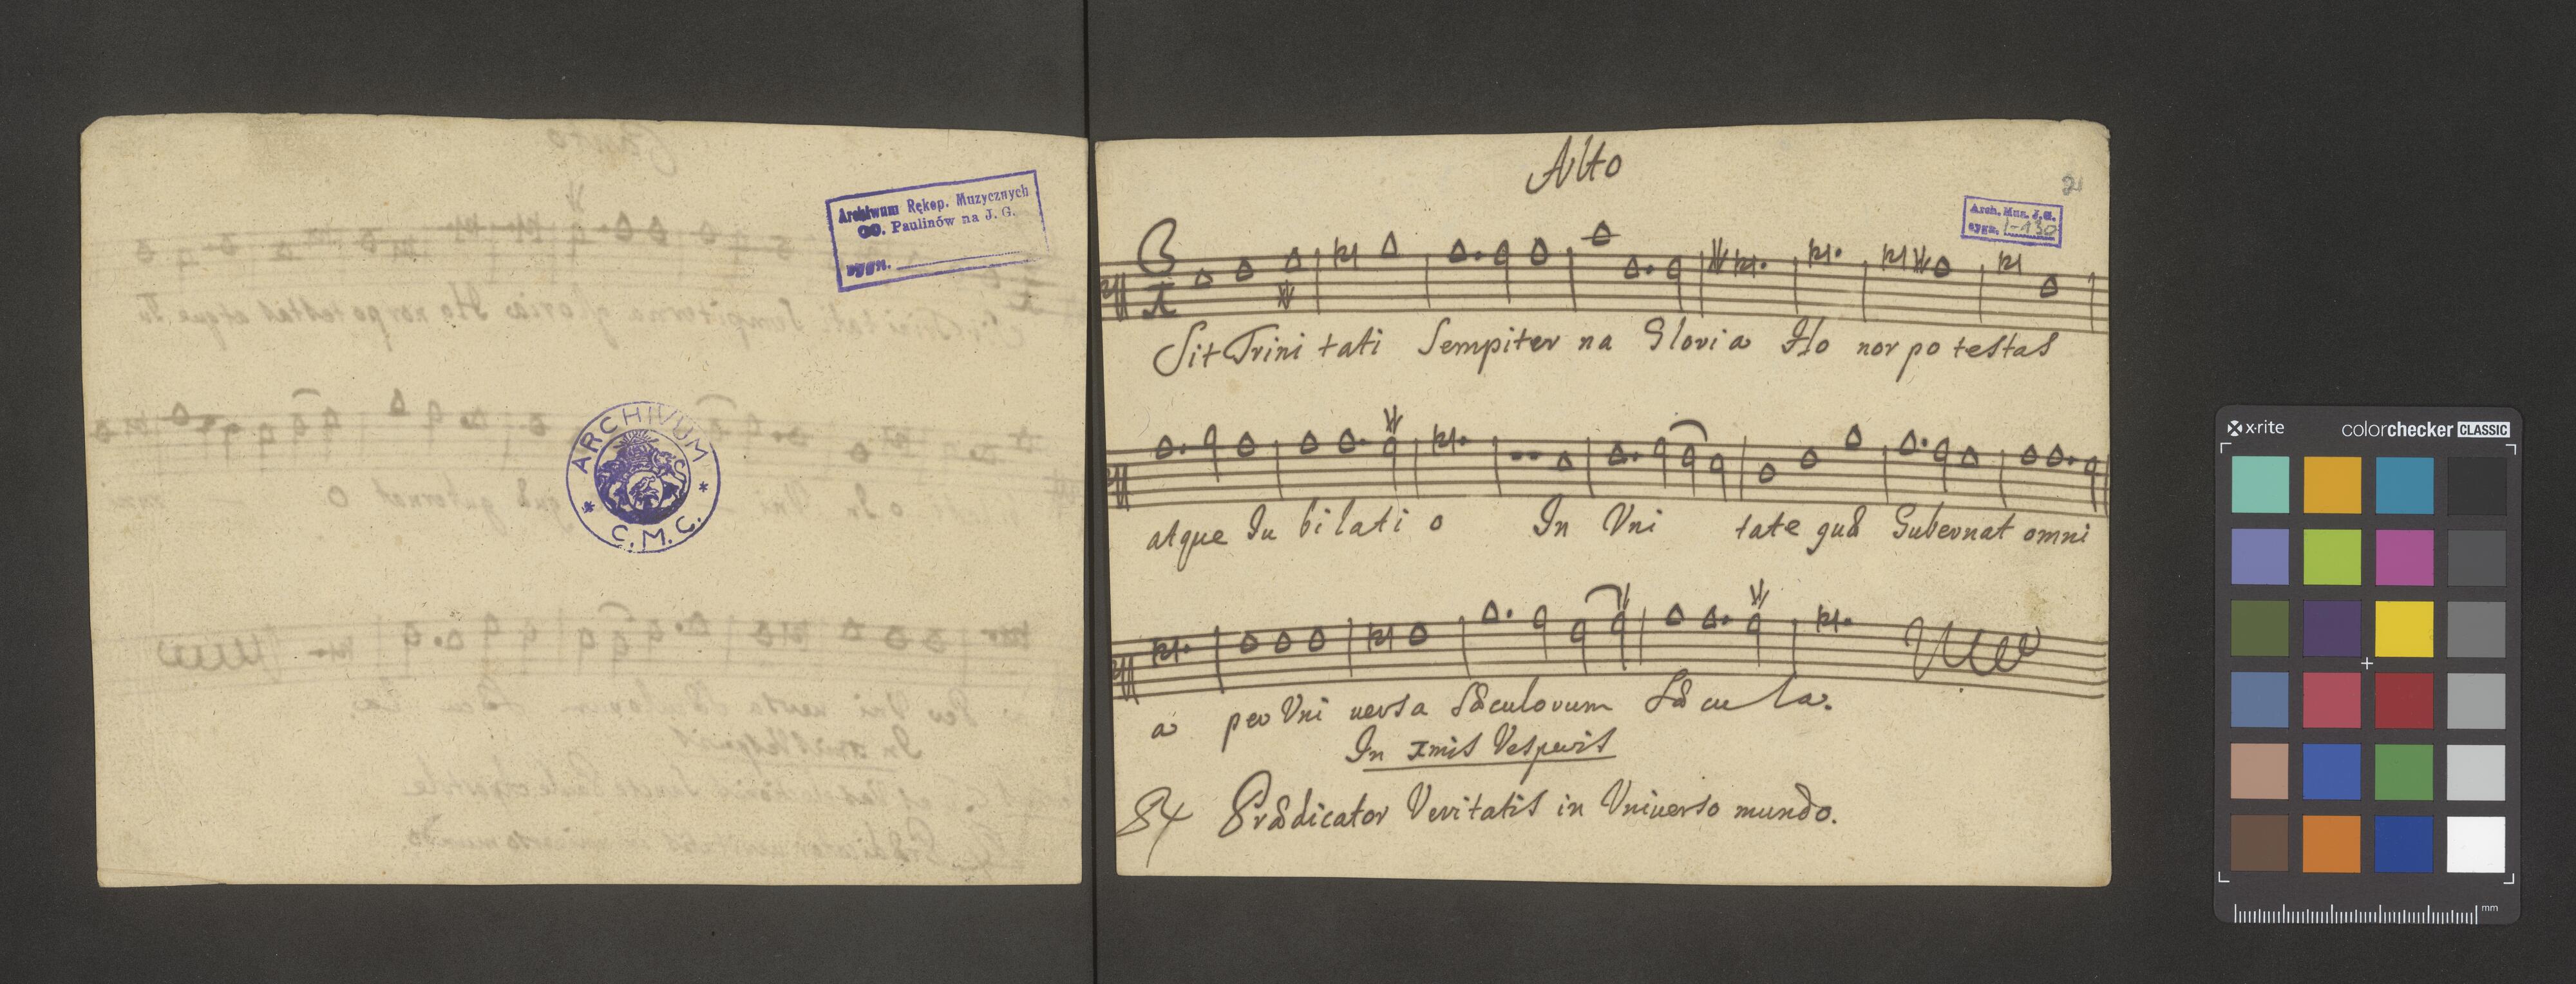 Archiwum Rękop. Muzycznych
OO. Paulinów na J. G.
sygn.
ARCHIVUM
C. M. C.
Alto
2
Arch. Muz. J. G.
sygn. I-130
Sit Trini tati Sempiter na Gloria Ho nor po testas
atque Iu bi lati o In Vni tate quæ Gubernat omni
a per Vni uersa Sæculorum Sæ cu la.
In xmis Vesperis
Prædicator Veritatis in Vniuerso mundo.
x-rite
colorchecker CLASSIC
mm